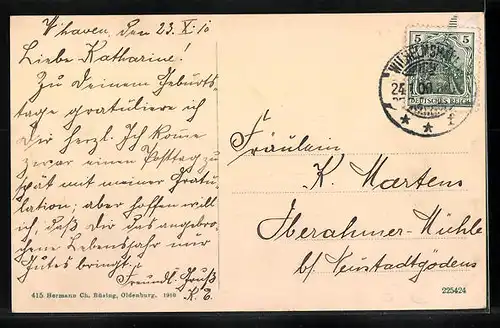 W'haven, den 23. X. 10
Liebe Katharine!
Zu Deinem Geburts-
tage gratuliere ich
Dir herzl. Ich komme
zwar einen Posttag zu
spät mit meiner Gratu-
lation; aber hoffen will
ich, daß Dir das angebro-
chene Lebensjahr nur
Gutes bringt.
Freundl. Gruß
K. E.
5 5
DEUTSCHES REICH
WILHELMSHAVEN
24
* * f
Fräulein
K. Martens
Iberahmer-Mühle
b/ Neustadtgödens
415 Hermann Ch. Büsing, Oldenburg, 1910
225424